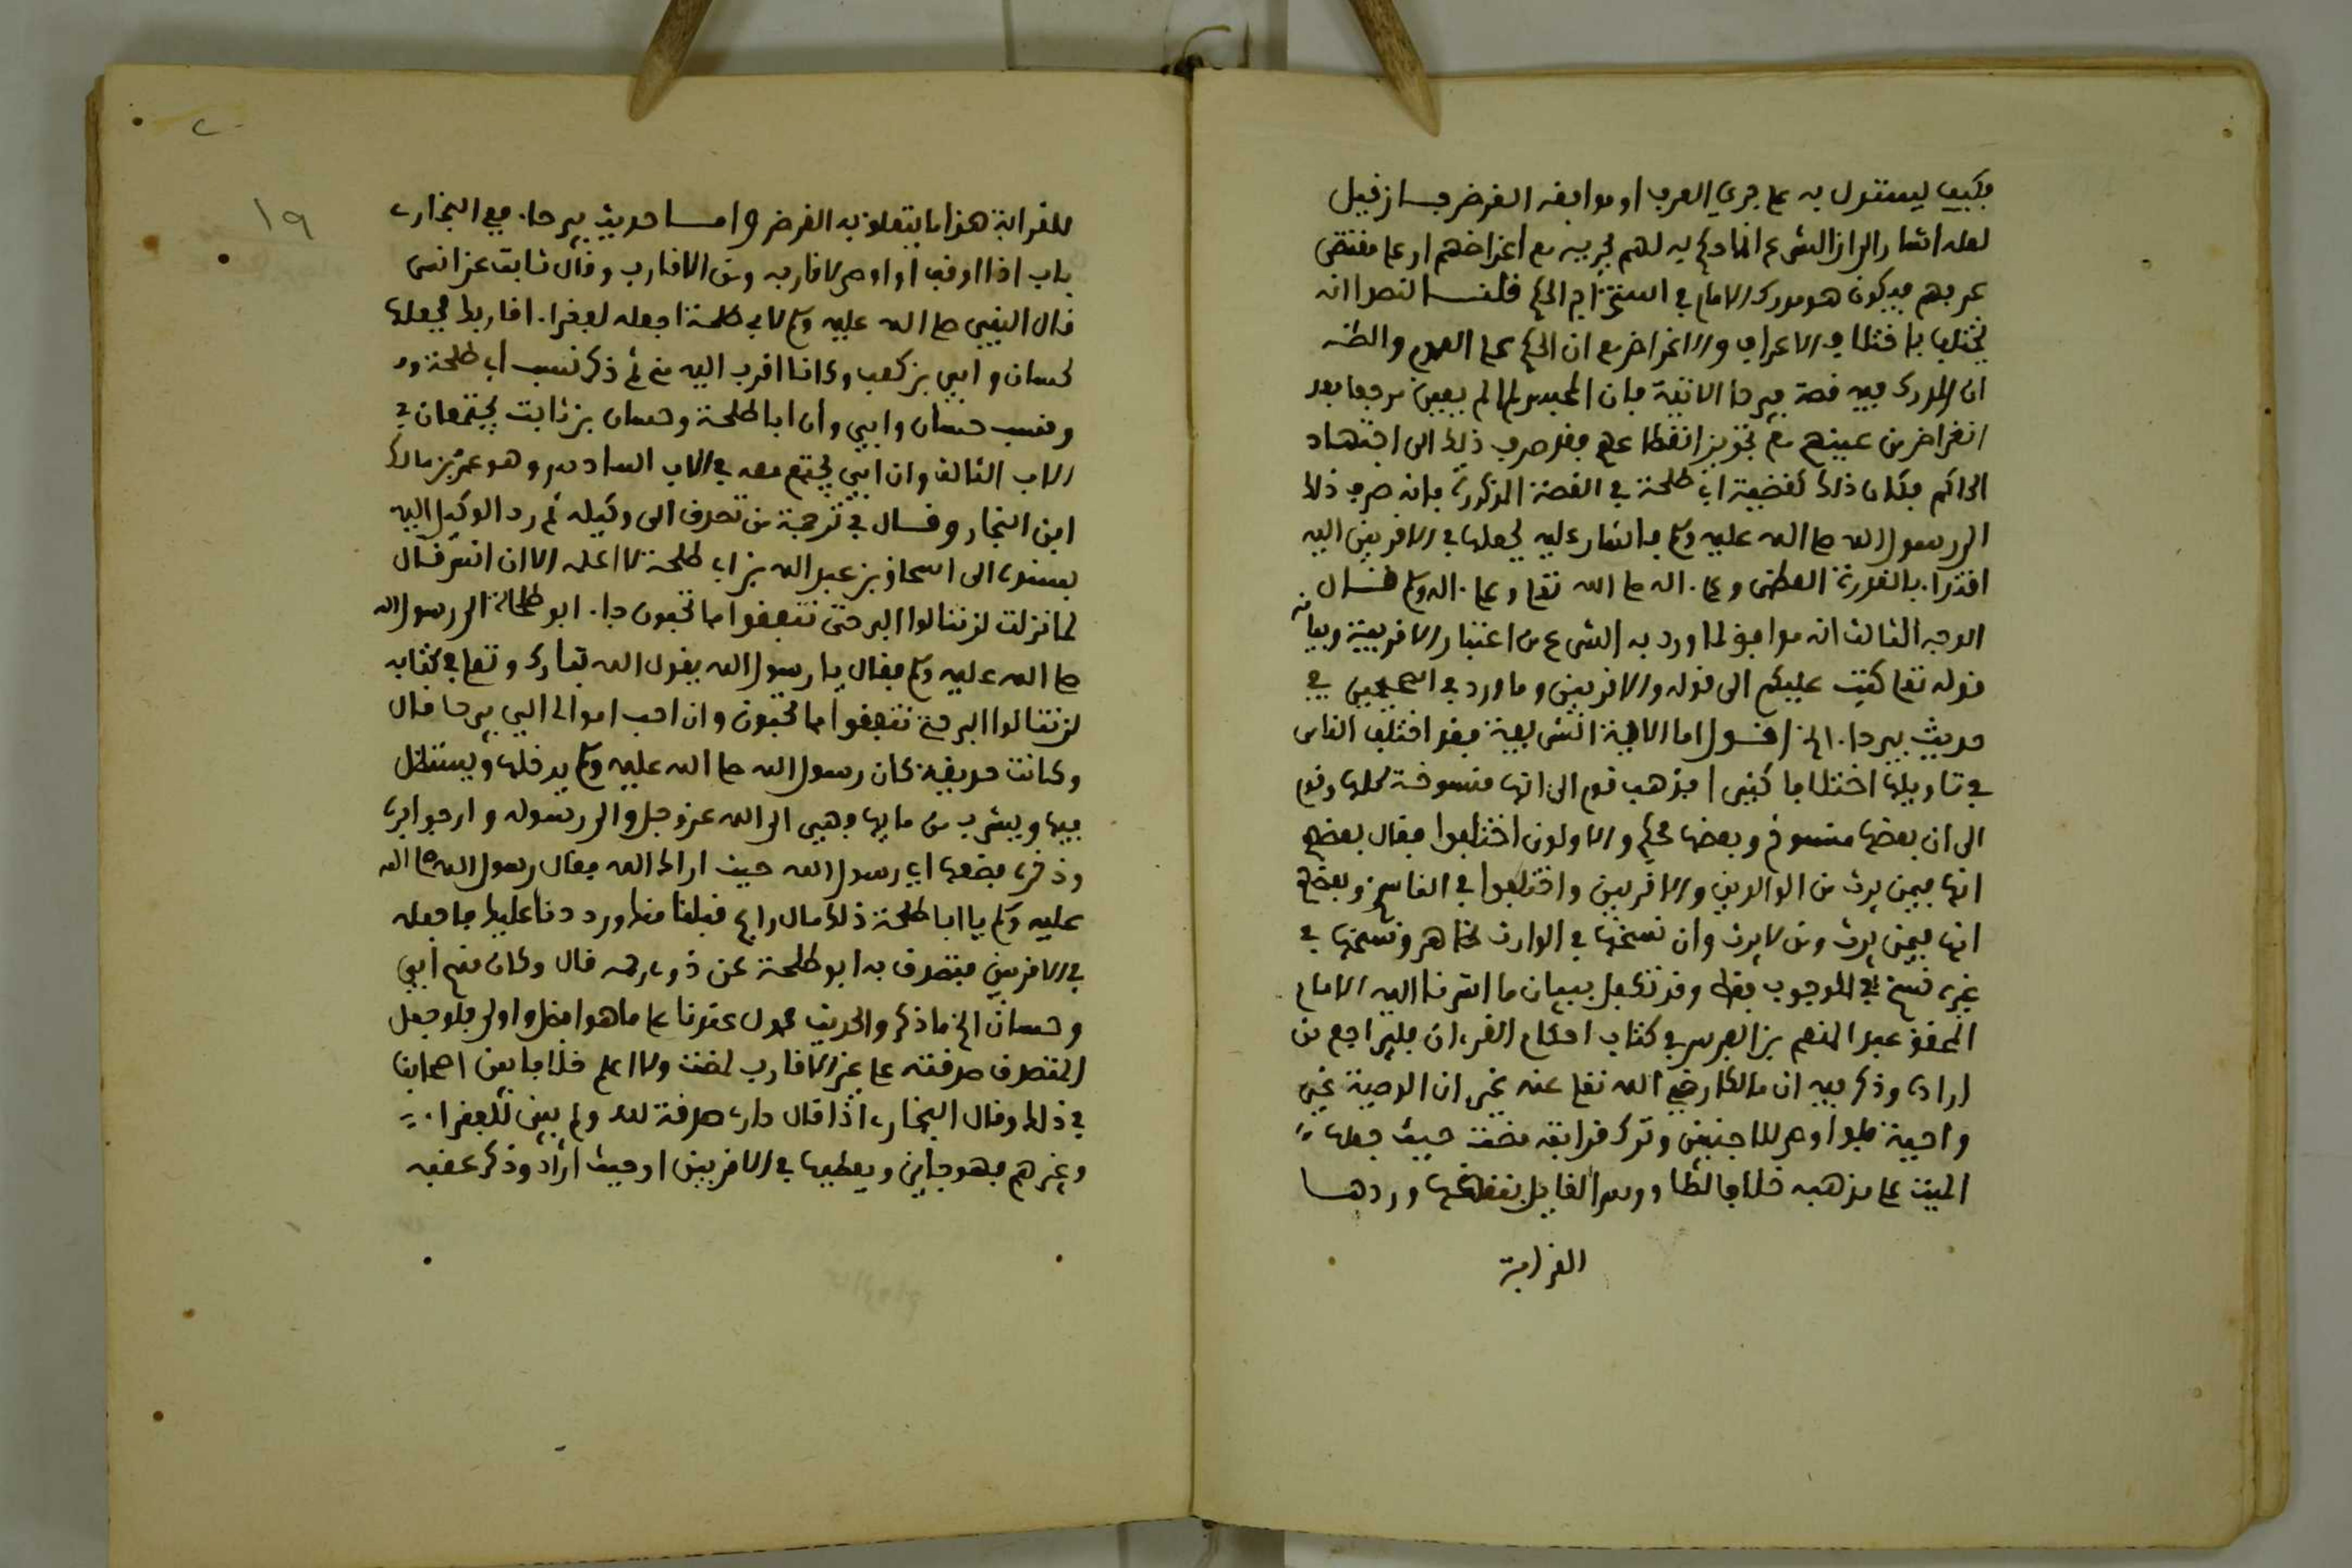 فكيف يستدل به على جري العرف او موافقه الغرض فان قيل
لعله اشار الى ان الشرع انما حكم به لهم لجريه مع اغراضهم او على مقتضى
عرفهم فيكون هو مدرك الامام في استخراج الحكم قلنا النص انه
يختلف باختلاف الاعراف والاغراض مع ان الحكم على العموم والظن
ان المدرك فيه قصة بيرحا الاتية فان المحبس لما لم يعين مرجعا بعد
انقراض من عينهم مع تجويز انقطاعهم فقد صرف ذلك الى اجتهاد
الحاكم فكان ذلك كقضية ابي طلحة في القصة المذكورة فانه صرف ذلك
الى رسول الله صلى الله عليه وسلم فاشار عليه بجعلها في الاقربين اليه
اقتداء بالقدوة العظمى وعلى اله صلى الله تعالى وعلى اله وسلم قال
الوجه الثالث انه موافق لما ورد به الشرع من اعتبار الاقربية وبيانه
قوله تعالى كتب عليكم الى قوله والاقربين وما ورد في الصحيحين في
حديث بيرحاء الخ اقول اما الاية الشريفة فقد اختلف الناس
في تاويلها اختلافا كثيرا فذهب قوم الى انها منسوخة كلها وقوم
الى ان بعضها منسوخ وبعضها محكم والاولون اختلفوا فقال بعضهم
انها فيمن يرث من الوالدين والاقربين واختلفوا في الناسخ وبعضهم
انها فيمن يرث ومن لا يرث وان نسخها في الوارث ظاهر ونسخها في
غيره نسخ في الوجوب فقط وقد تكفل ببيان ما اشرنا اليه الامام
المحقق عبد المنعم بن الفرس في كتاب احكام القرءان فليراجع من
اراده وذكر فيه ان مالكا رضي الله تعالى عنه يجيز ان الوصية غير
واجبة فلو اوصى للاجنبي وترك قرابته مضت حيث جعلها
الميت على مذهبه خلافا لطاووس القايل بنقضها وردها
القرابة
للقرابة هذا ما يتعلق به الغرض واما حديث بيرحاء ففي البخاري
باب اذا اوقف او اوصى لاقاربه ومن الاقارب وقال ثابت عن انس
قال النبي صلى الله عليه وسلم لابي طلحة اجعله لفقراء اقاربك فجعلها
لحسان وابي بن كعب وكانا اقرب اليه مني ثم ذكر نسب ابي طلحة
ونسب حسان وابي وان ابا طلحة وحسان بن ثابت يجتمعان في
الاب الثالث وان ابي يجتمع معه في الاب السادس وهو عمرو بن مالك
ابن النجار وقال في ترجمة من تصدق الى وكيله ثم رد الوكيل اليه
بسنده الى اسحاق بن عبد الله بن ابي طلحة لا اعلمه الا ان انس قال
لما نزلت لن تنالوا البر حتى تنفقوا مما تحبون جاء ابو طلحة الى رسول الله
صلى الله عليه وسلم فقال يا رسول الله يقول الله تبارك وتعالى في كتابه
لن تنالوا البر حتى تنفقوا مما تحبون وان احب اموالي الي بيرحا قال
وكانت حديقة كان رسول الله صلى الله عليه وسلم يدخلها ويستظل
فيها ويشرب من مايها فهي الى الله عز وجل والى رسوله وارجو برها
وذخرها فضعها اي رسول الله حيث اراك الله فقال رسول الله صلى الله
عليه وسلم يا ابا طلحة ذلك مال رابح قبلنا منك ورددنا عليك فاجعله
في الاقربين فتصدق به ابو طلحة على ذوي رحمه قال وكان منهم ابي
وحسان الخ ما ذكر والحديث محمول عندنا على ما هو افضل واولى فلو جعل
المتصدق صدقته على غير الاقارب لمضت ولا اعلم خلافا بين اصحابنا
في ذلك وقال البخاري اذا قال داري صدقة لله ولم يبين للفقراء
وغيرهم فهو جايز ويعطيها في الاقربين او حيث اراد وذكر عقبه
١٩